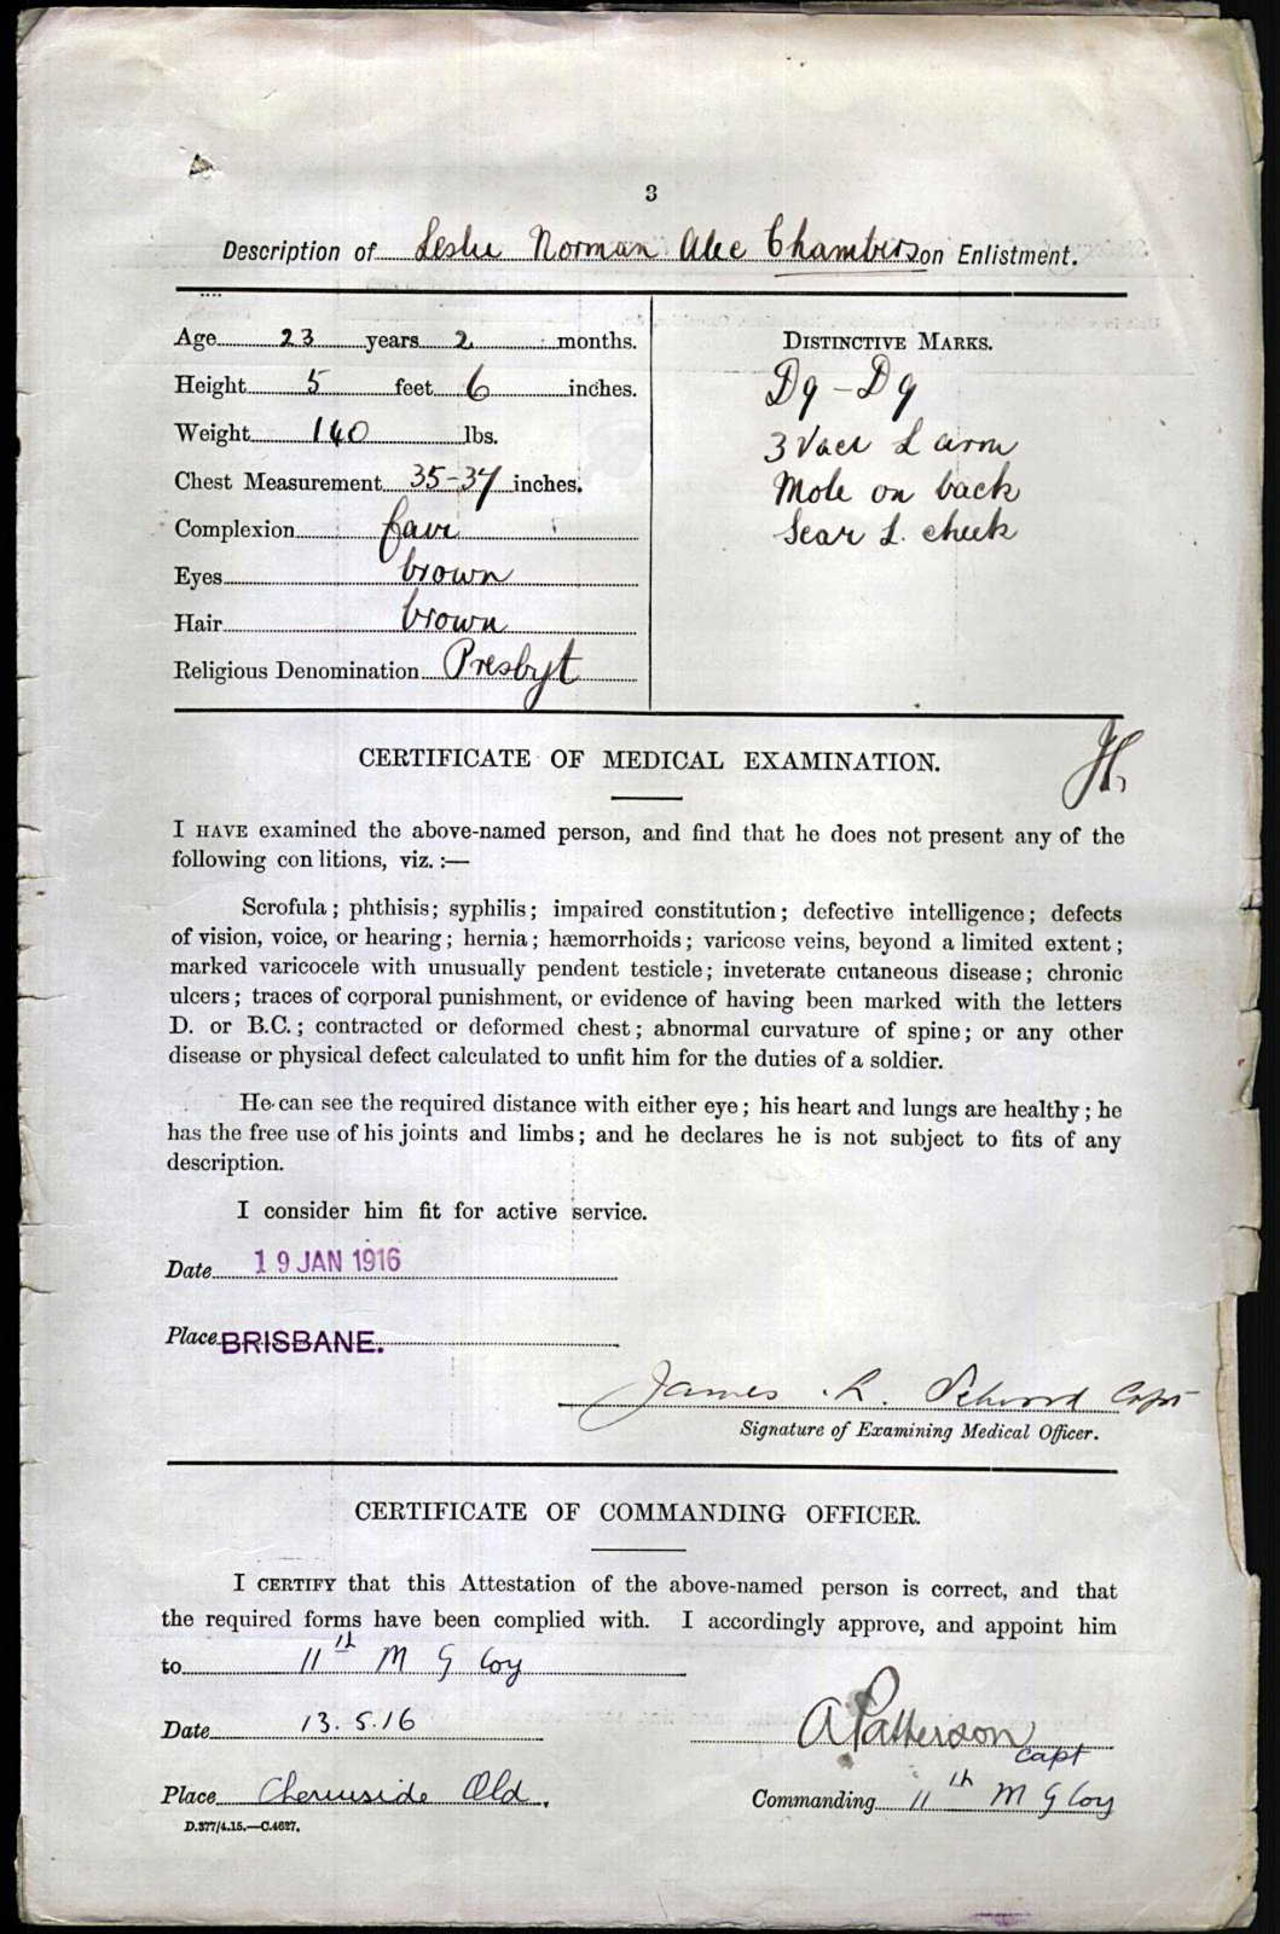 3
Description of Leslie Norman Alec Chambers on Enlistment.
Age 23 years 2 months.
Height 5 feet 6 inches.
Weight 140 lbs.
Chest Measurement 35-37 inches.
Complexion fair
Eyes brown
Hair brown
Religious Denomination Presbyt
DISTINCTIVE MARKS.
D9 - D9
3 Vacc L arm
Mole on back
Scar L. cheek
CERTIFICATE OF MEDICAL EXAMINATION.
I HAVE examined the above-named person, and find that he does not present any of the
following con litions, viz. :—
Scrofula; phthisis; syphilis; impaired constitution; defective intelligence; defects
of vision, voice, or hearing; hernia; hæmorrhoids; varicose veins, beyond a limited extent;
marked varicocele with unusually pendent testicle; inveterate cutaneous disease; chronic
ulcers; traces of corporal punishment, or evidence of having been marked with the letters
D. or B.C.; contracted or deformed chest; abnormal curvature of spine; or any other
disease or physical defect calculated to unfit him for the duties of a soldier.
He can see the required distance with either eye; his heart and lungs are healthy; he
has the free use of his joints and limbs; and he declares he is not subject to fits of any
description.
I consider him fit for active service.
Date 19 JAN 1916
Place BRISBANE.
James . Capt
Signature of Examining Medical Officer.
CERTIFICATE OF COMMANDING OFFICER.
I CERTIFY that this Attestation of the above-named person is correct, and that
the required forms have been complied with. I accordingly approve, and appoint him
to 11th M G Coy
Date 13.5.16
A Patterson
Capt
Place Chermside Qld.
Commanding 11th M G Coy
D.377/4.15.—C.4627.